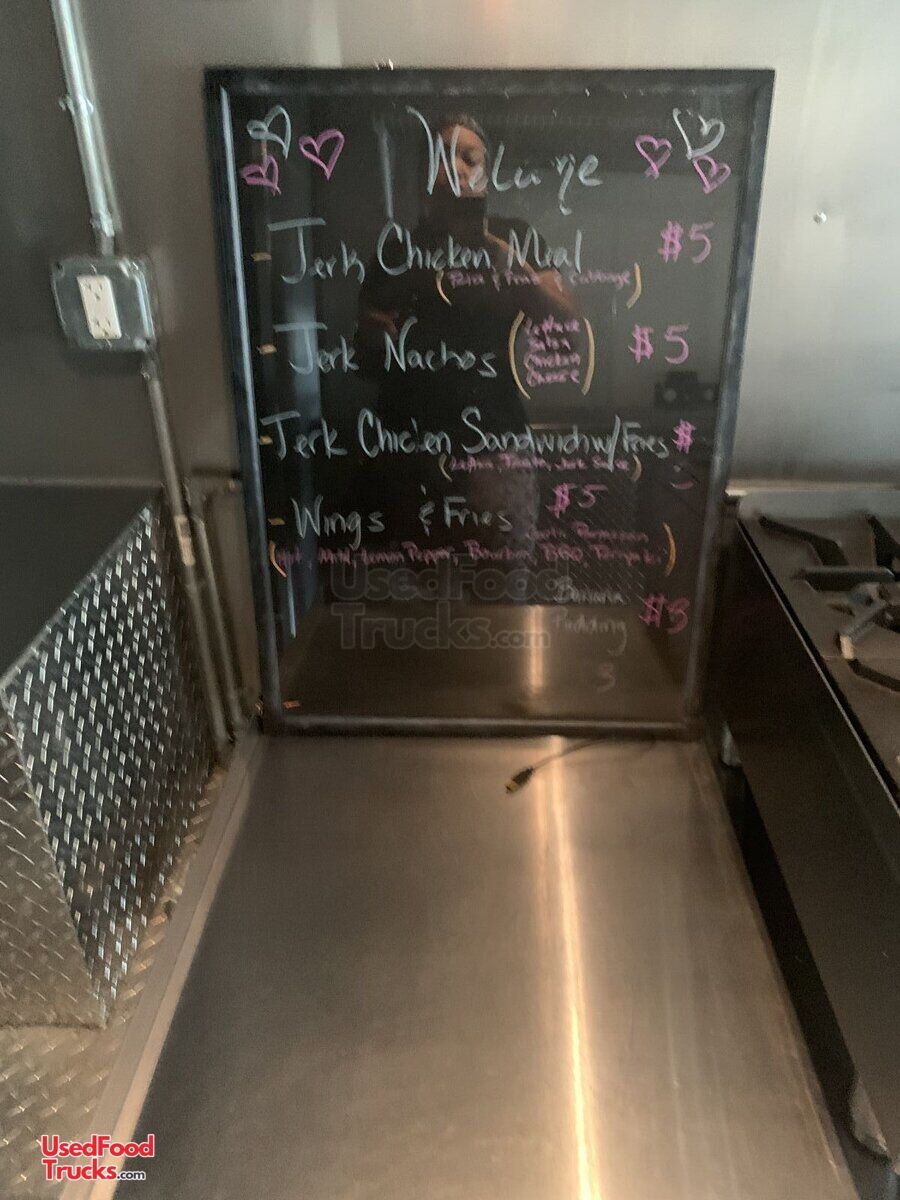 Welcome
- Jerk Chicken Meal $5
(Rice & Peas & Cabbage)
- Jerk Nachos (Lettuce $5
Salsa
Chicken
Cheese)
- Jerk Chicken Sandwich w/ Fries $
(
- Wings & Fries $5
Garlic Parmesan
(Hot, Mild, Lemon Pepper, Bourbon, BBQ, Teriyaki)
Banana $3
Pudding
UsedFood
Trucks.com
UsedFood
Trucks.com